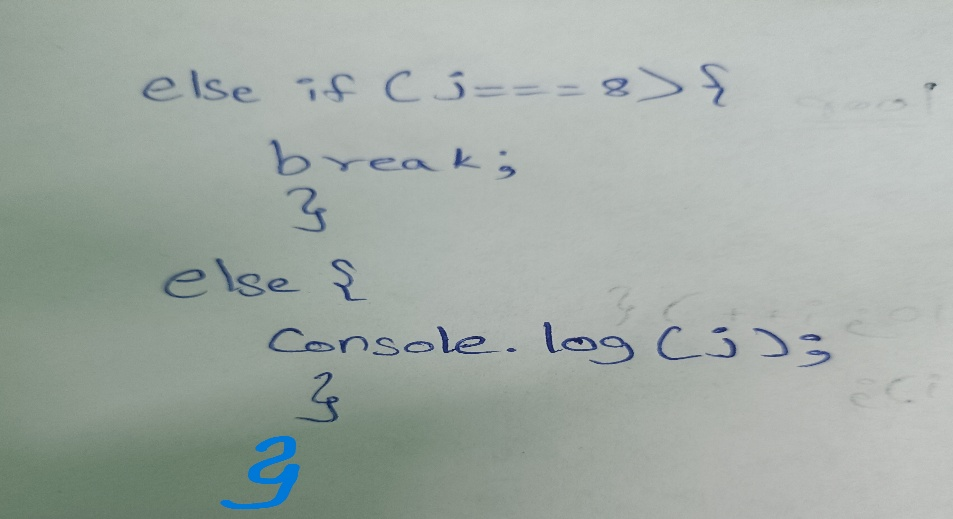 else if (j===8>{
break;
}
else {
Console.log(j);
}
}